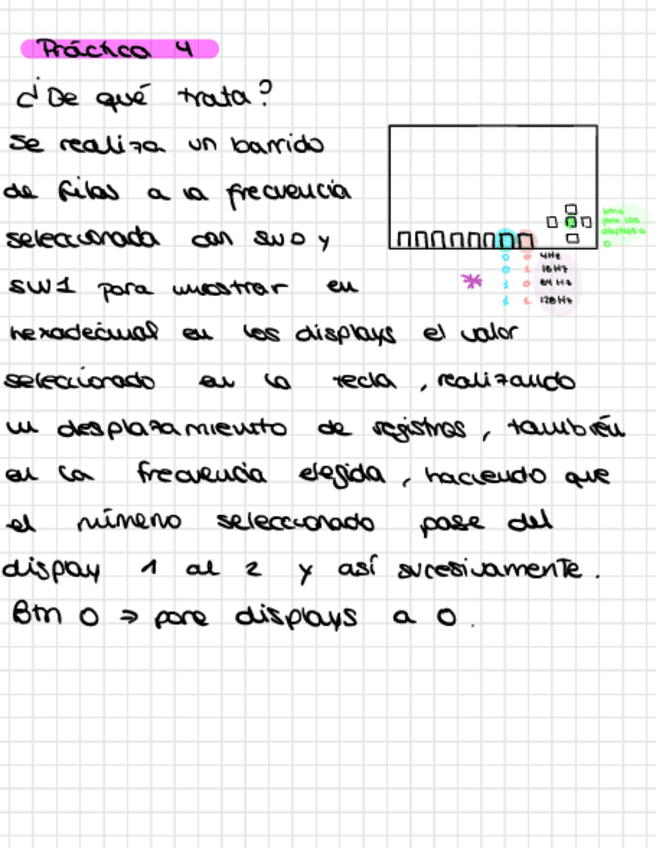 Práctica 4
¿De qué trata?
Se realiza un barrido
de filas a la frecuencia
seleccionada con SW0 y
SW1 para mostrar en
hexadecimal en los displays el valor
seleccionado en la tecla, realizando
un desplazamiento de registros, también
en la frecuencia elegida, haciendo que
el número seleccionado pase del
display 1 al 2 y así sucesivamente.
Btn 0 ⇒ pone displays a 0.
btn0
pone los
displays a
0
0 0 4Hz
0 1 16Hz
* 1 0 64Hz
1 1 128Hz